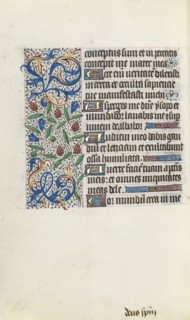 conceptus sum et in peccatis
concepit me mater mea
Ecce enim veritatem dilexisti
incerta et occulta sapiencie
tue manifestasti michi
Asperges me dñe ysopo et
mundabor lavabis me et sup
nivem dealbabor
Auditui meo dabis gau
diū et leticiam et exultabunt
ossa humiliata
Averte faciem tuam a pctis
meis et omnes iniquitates
meas dele
Cor mundū crea in me